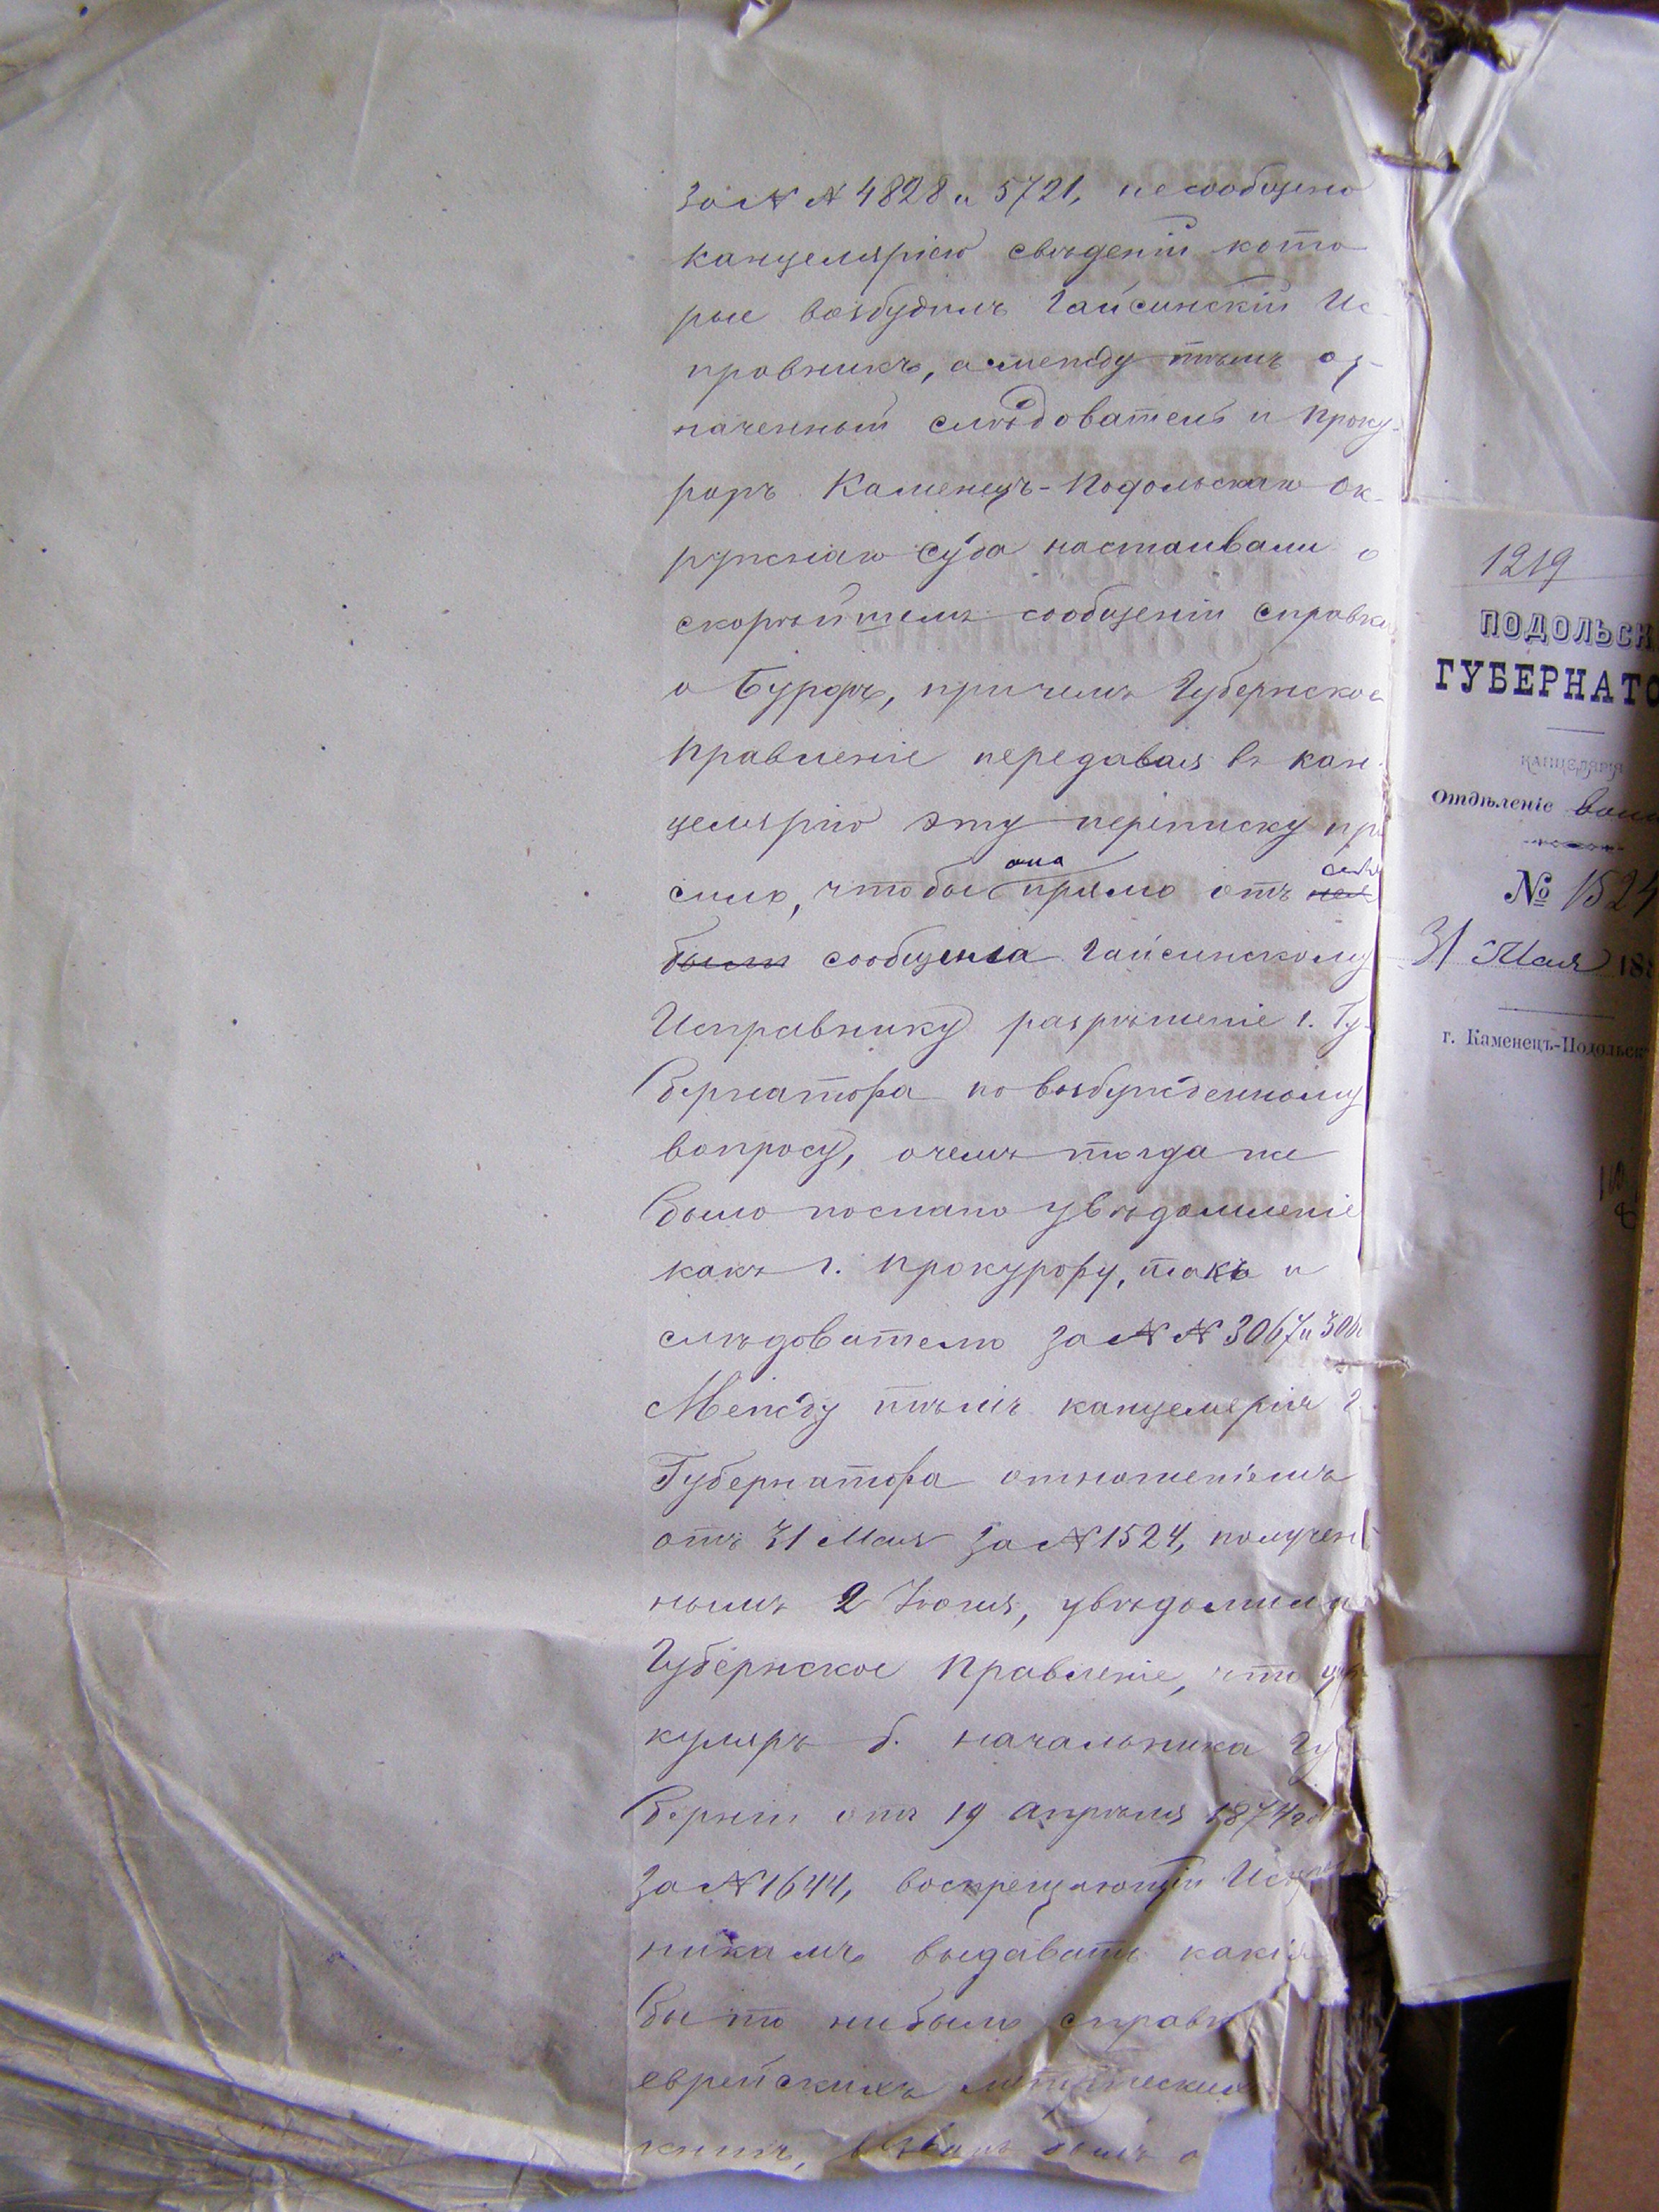 за № № 4828 и 5721, не сообщено
канцеляріею свѣденій кото
рые возбудилъ Гайсинскій Ис-
правникъ, а между тѣмъ оз-
наченный слѣдователь и Проку-
роръ Каменецъ-Подольскаго Ок-
ружнаго Суда настаивали о
скорѣйшемъ сообщеніи справки
о Бурдѣ, причемъ Губернское
Правленіе передавая въ кан-
целярію эту переписку про
сило, чтобы она прямо отъ себя
были сообщила Гайсинскому
Исправнику разрѣшеніе г. Гу-
бернатора по возбужденному
вопросу, о чемъ тогда же
было послано увѣдомленіе
какъ г. Прокурору, такъ и
слѣдователю за № № 3067 и
Между тѣмъ канцелярія г.
Губернатора отношеніемъ
отъ 31 Мая за № 1524, получен
нымъ 2 Іюня, увѣдомила
Губернское Правленіе, что цир
куляръ б. начальника Гу
берніи отъ 19 Апрѣля 1874 го
за № 1644, воспрещающій Исправ
никамъ выдавать какія
бы то нибыло справки
еврейскихъ метрическихъ
книгъ,
1219
ПОДОЛЬСК
ГУБЕРНАТО
КАНЦЕЛЯРІЯ
Отдѣленіе
№ 1524
31 Мая 188
г. Каменецъ-Подольск